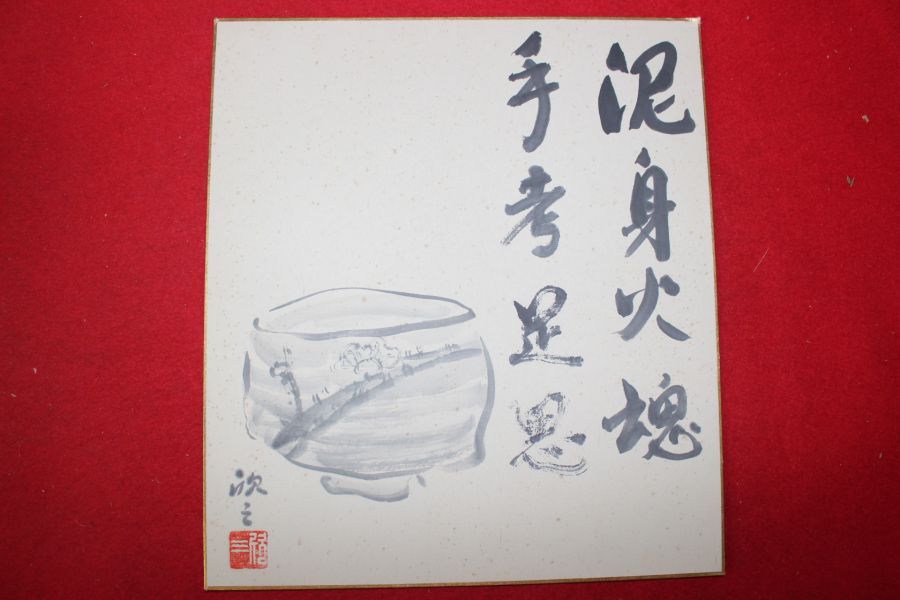 泥身火魂
手考足思
欣之